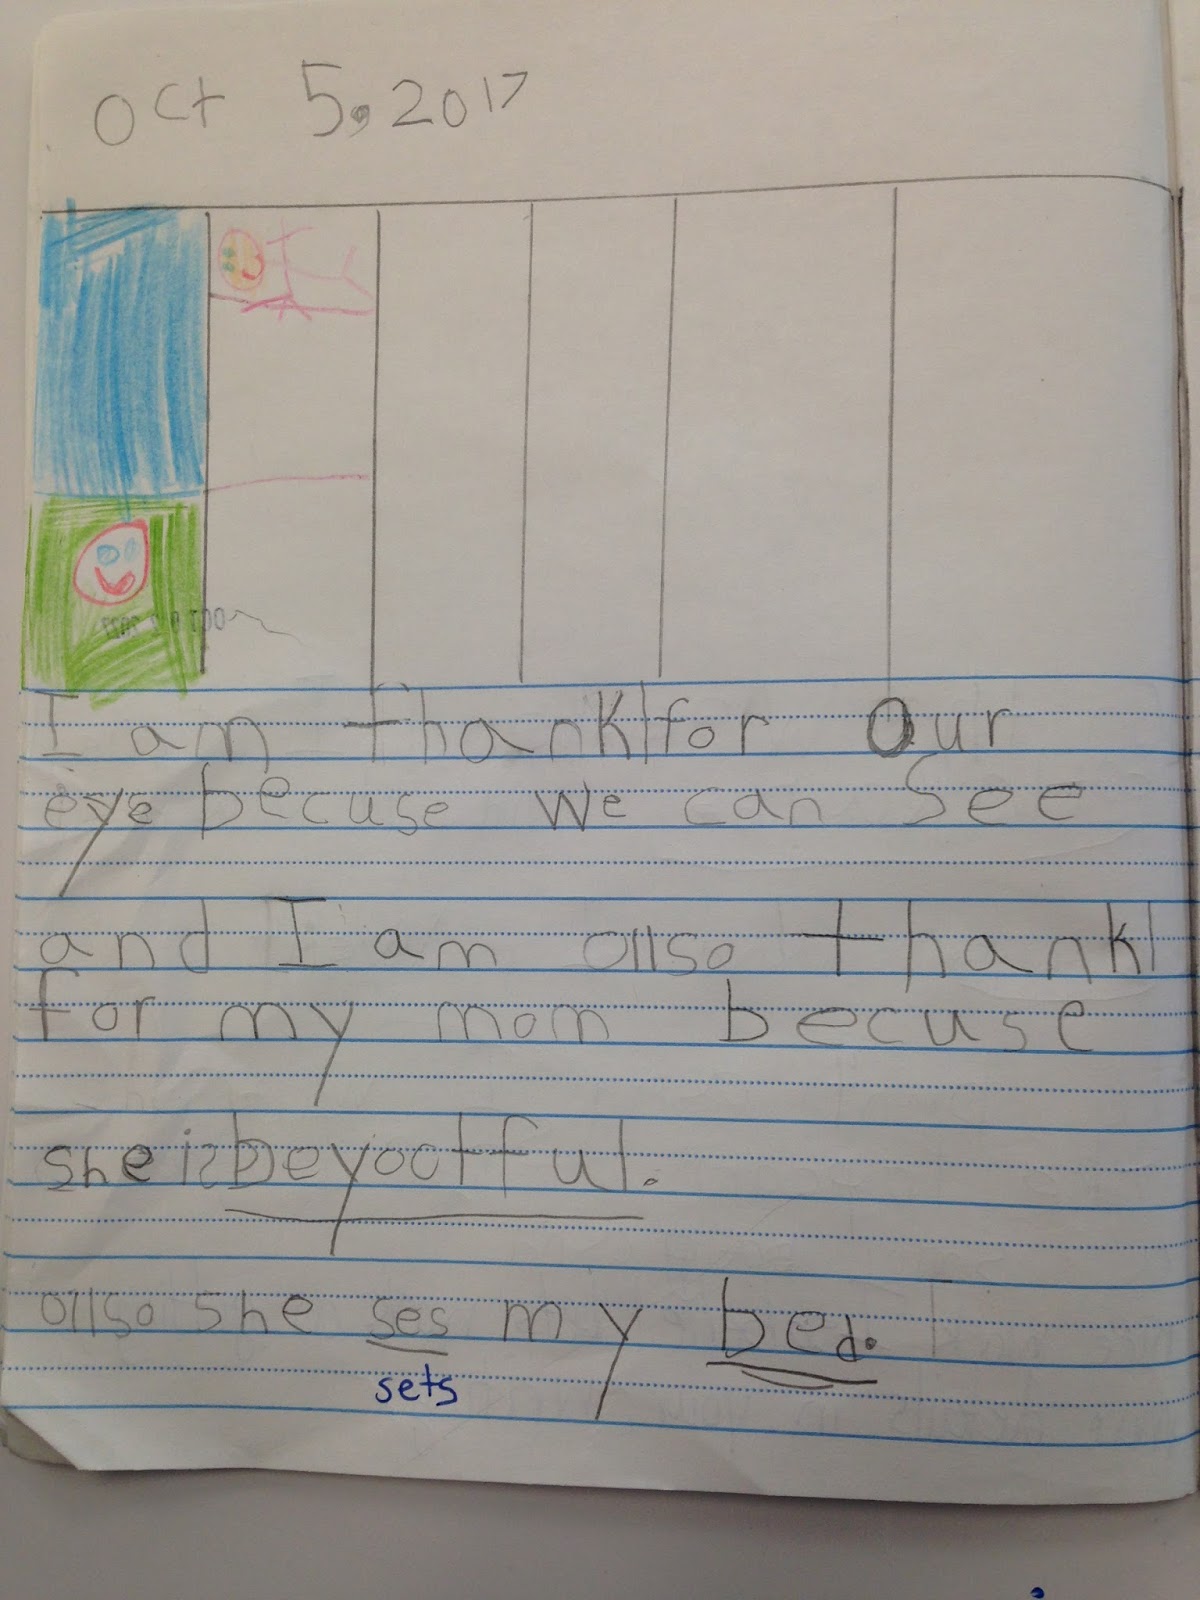 Oct 5, 2017
I am thankl for Our
eye becuse we can See
and I am allso thankl
for my mom becuse
she is beyoctful.
allso she ses my bed.
sets